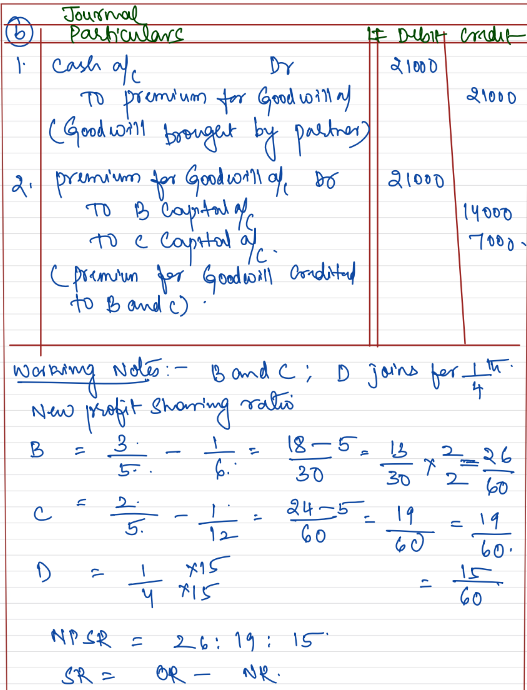 Journal
(b) Particulars LF Debit Credit
1. Cash a/c Dr 21000
To premium for Goodwill a/ 21000
(Goodwill brought by partner)
2. premium for Goodwill a/c Dr 21000
To B Capital a/c 14000
To C Capital a/c. 7000.
(premium for Goodwill Credited
to B and C).
Working Notes:- B and C; D joins for 1/4 th.
New profit sharing ratio
B = 3/5. - 1/6. = 18-5/30 = 13/30 × 2/2 = 26/60
C = 2./5. - 1/12 = 24-5/60 = 19/60 = 19/60.
D = 1/4 ×15/×15 = 15/60
NPSR = 26: 19: 15.
SR = OR - NR.